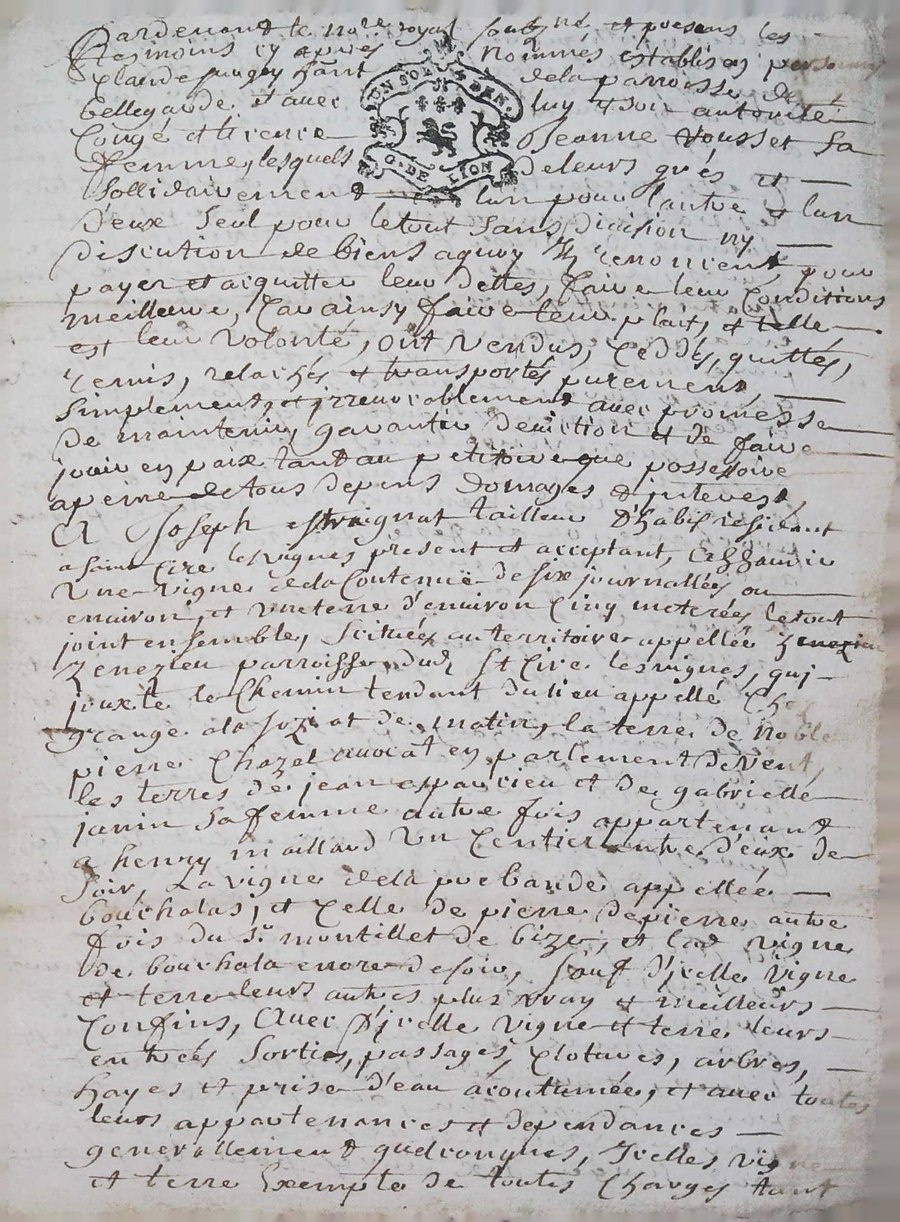 Pardevant le no.re royal soubz.né et presens les
tesmoins cy apres nommés establis en
Claude de la parroisse de
bellegarde et avec luy et soir autorite
Congé et licence Jeanne Rousset sa
femme, lesquels de leurs grés et
sollidairement lun pour lautre et lun
deux seul pour le tout sans division ny
discution de biens aquoy ilz renoncient, pour
payer et aiquitter leur dettes, faire leur Conditions
meilleure, Car ainsy faire leur plait, et telle
est leur volonté, ont vendus, Ceddés, quittés,
remis, relachés et transportés purement,
simplement, et irreuocablement avec promesse
de maintenir, garantir deviction et de faire
jouir en paix tant au petitoire que possessoire
apeine de tous depens domages et interest,
A Joseph estraignat tailleur D'habis residant
a saint Cire les vignes present et acceptant,
Une vigne de la Contenuë de six journallées ou
environ, et une terre d'environ Cinq meterées le tout
joint ensemble, scituées au territoire appellée
Zenezieu parroisse dud. St Cire les vignes, qui
jouxte le Chemin tendant du lieu appellé Chez
grange a la et de matin, la terre de noble
pierre Chazel avocat en parlement de vent,
les terres de jean et de gabrielle
janin sa femme autre fois appartenant
a henry maillard Un Centier entre d'eux de
soir, La vigne de la prebande appellée
bouchalas, et Celle de pierre depierre autre
fois du Sr. montillet de bize, et lad. vigne
de bouchala encore de soir, sauf D'jcelle vigne
et terre leurs autres plus vray et meilleurs
Confins, Avec D'jcelle vigne et terre leurs
entrées sorties, passages, Clotures, arbres,
hayes et prise d'eau acoutumée, et avec toutes
leurs appartenances et dependances
generallement quelconques, Jcelles vigne
et terre Exempte de toutes Charges tant
G. DE LION